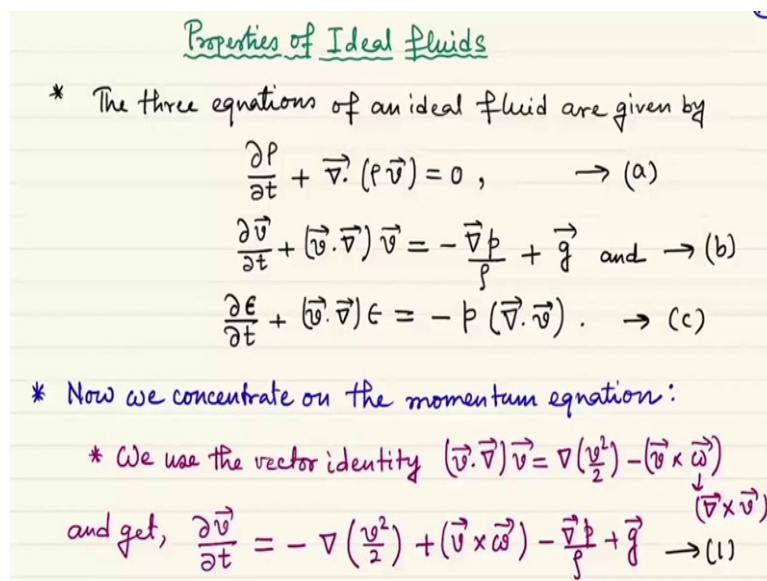 Properties of Ideal fluids
* The three equations of an ideal fluid are given by
∂ρ/∂t + ∇⃗·(ρv⃗) = 0, → (a)
∂v⃗/∂t + (v⃗·∇⃗)v⃗ = -∇⃗p/ρ + g⃗ and → (b)
∂ϵ/∂t + (v⃗·∇⃗)ϵ = -p(∇⃗·v⃗). → (c)
* Now we concentrate on the momentum equation:
* We use the vector identity (v⃗·∇⃗)v⃗ = ∇(v²/2) - (v⃗ × ω⃗)
↓
(∇⃗×v⃗)
and get, ∂v⃗/∂t = -∇(v²/2) + (v⃗ × ω⃗) - ∇⃗p/ρ + g⃗ → (1)